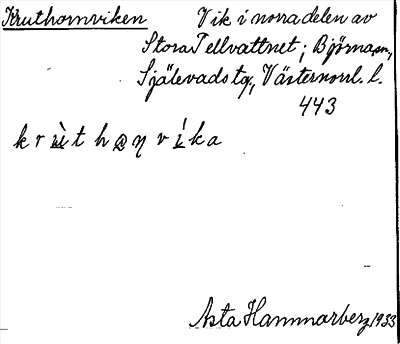 Kruthornviken Vik i norra delen av
Stora Tellvattnet; Björna sn,
Själevads tg, Västernorrl. l.
443
k r ù t h @ η v í k a
Asta Hammarberg 1933